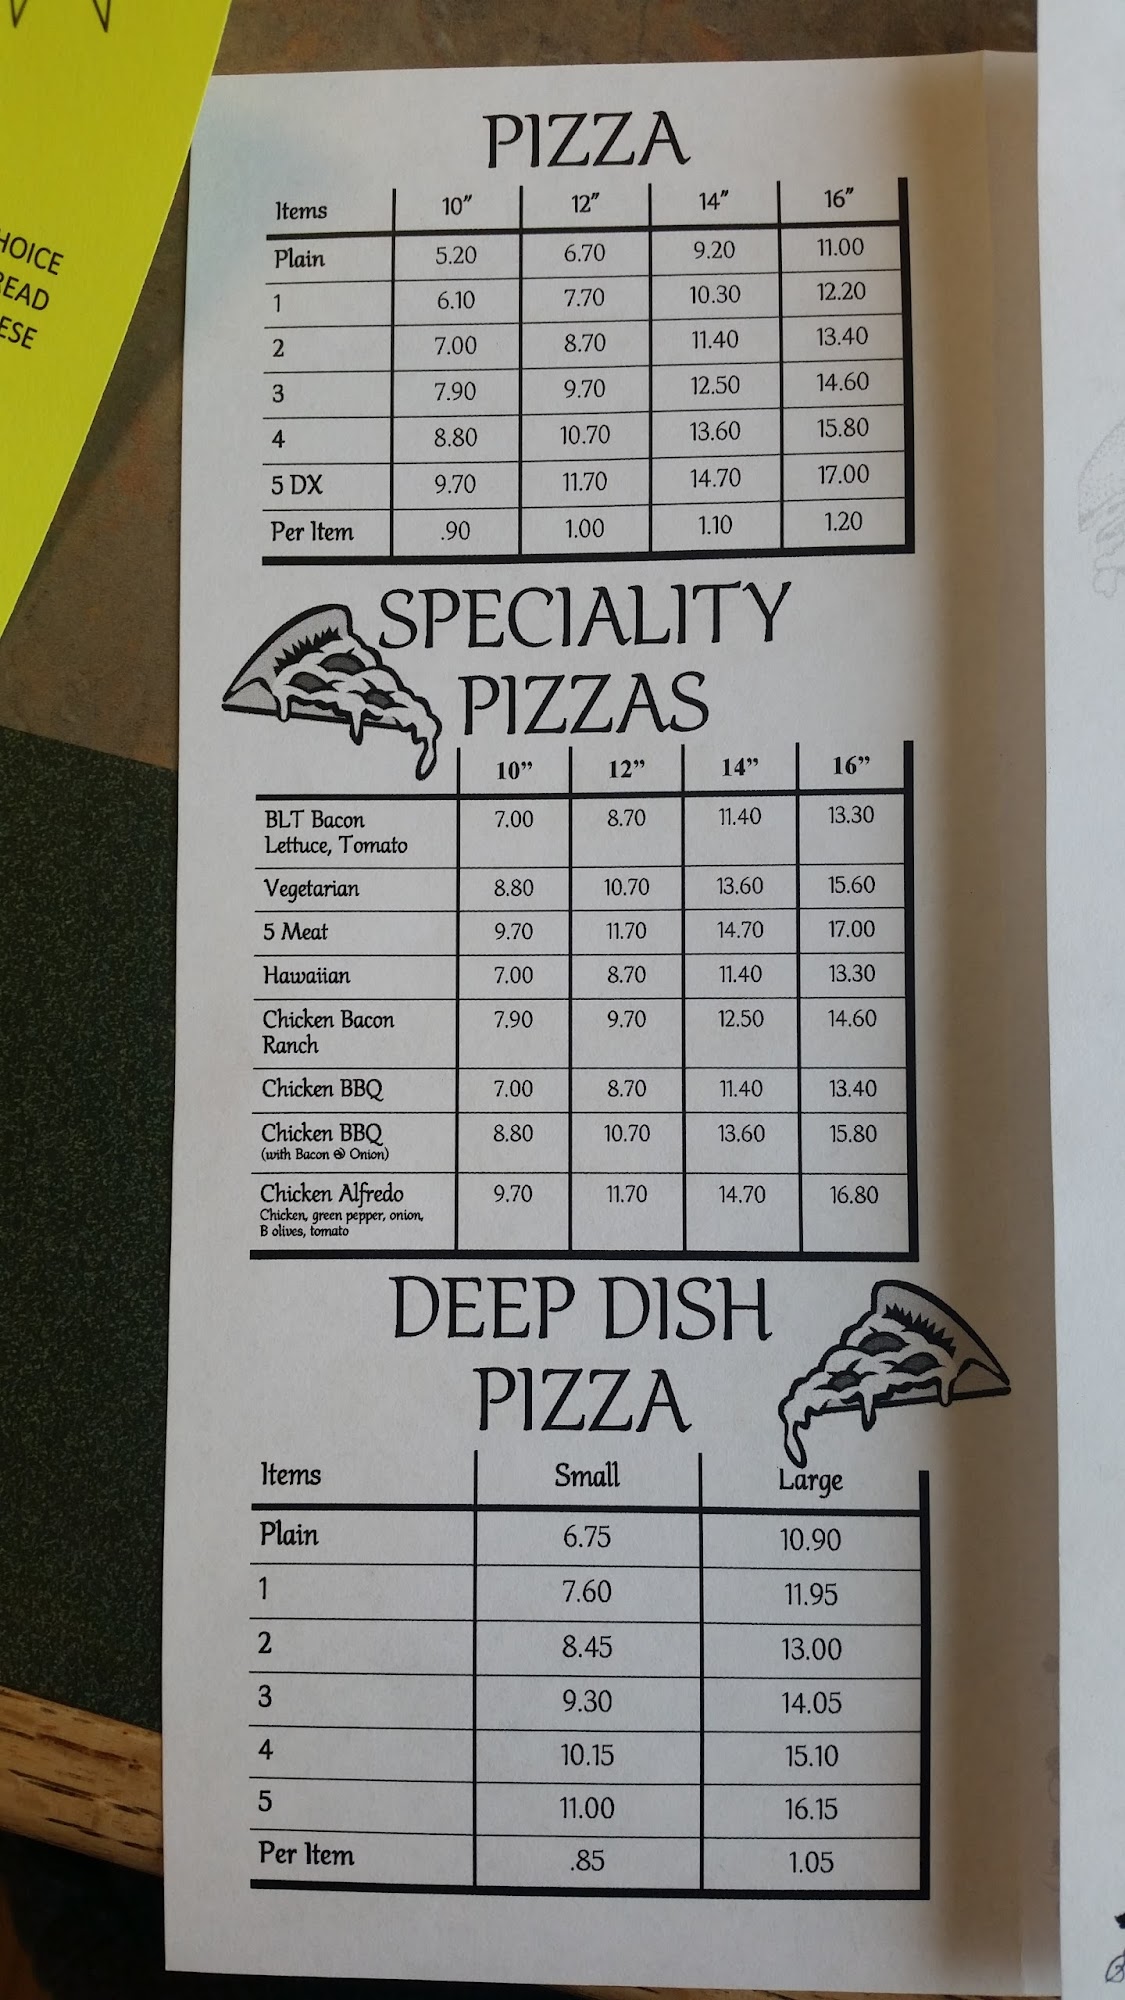 HOICE
READ
ESE
PIZZA
Items 10” 12” 14” 16”
Plain 5.20 6.70 9.20 11.00
1 6.10 7.70 10.30 12.20
2 7.00 8.70 11.40 13.40
3 7.90 9.70 12.50 14.60
4 8.80 10.70 13.60 15.80
5 DX 9.70 11.70 14.70 17.00
Per Item .90 1.00 1.10 1.20
SPECIALITY
PIZZAS
10” 12” 14” 16”
BLT Bacon 7.00 8.70 11.40 13.30
Lettuce, Tomato
Vegetarian 8.80 10.70 13.60 15.60
5 Meat 9.70 11.70 14.70 17.00
Hawaiian 7.00 8.70 11.40 13.30
Chicken Bacon 7.90 9.70 12.50 14.60
Ranch
Chicken BBQ 7.00 8.70 11.40 13.40
Chicken BBQ 8.80 10.70 13.60 15.80
(with Bacon & Onion)
Chicken Alfredo 9.70 11.70 14.70 16.80
Chicken, green pepper, onion,
B olives, tomato
DEEP DISH
PIZZA
Items Small Large
Plain 6.75 10.90
1 7.60 11.95
2 8.45 13.00
3 9.30 14.05
4 10.15 15.10
5 11.00 16.15
Per Item .85 1.05